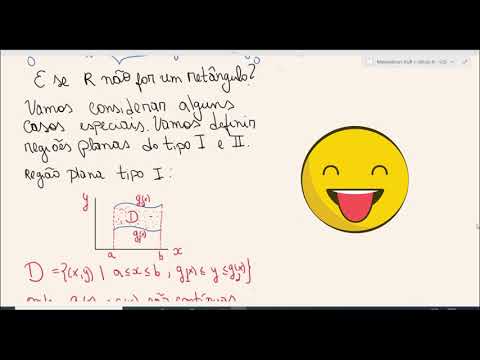 E se R não for um retângulo?
Vamos considerar alguns
casos especiais. Vamos definir
regiões planas do tipo I e II.
Região plana tipo I:
y
g₂(x)
D
g₁(x)
a b x
D = {(x,y) | a ≤ x ≤ b, g₁(x) ≤ y ≤ g₂(x)}
são contínuas